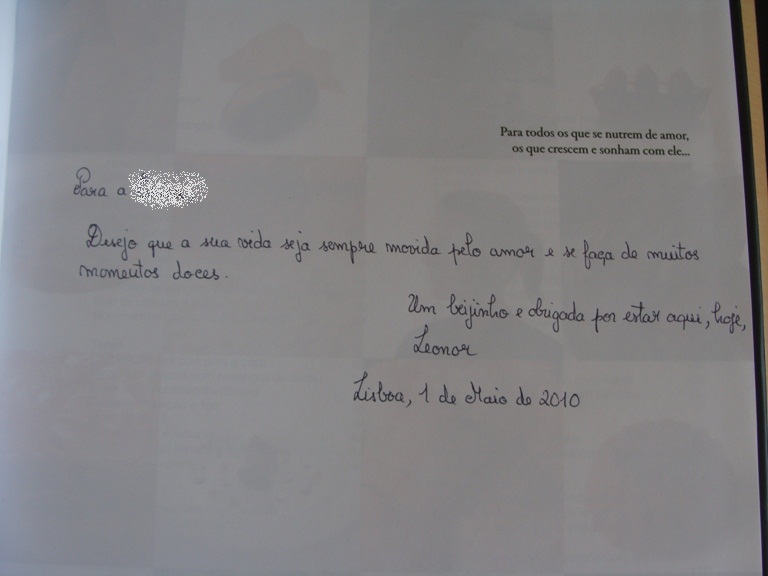 Para todos os que se nutrem de amor,
os que crescem e sonham com ele...
Para a
Desejo que a sua vida seja sempre movida pelo amor e se faça de muitos
momentos doces.
Um beijinho e obrigada por estar aqui, hoje,
Leonor
Lisboa, 1 de Maio de 2010